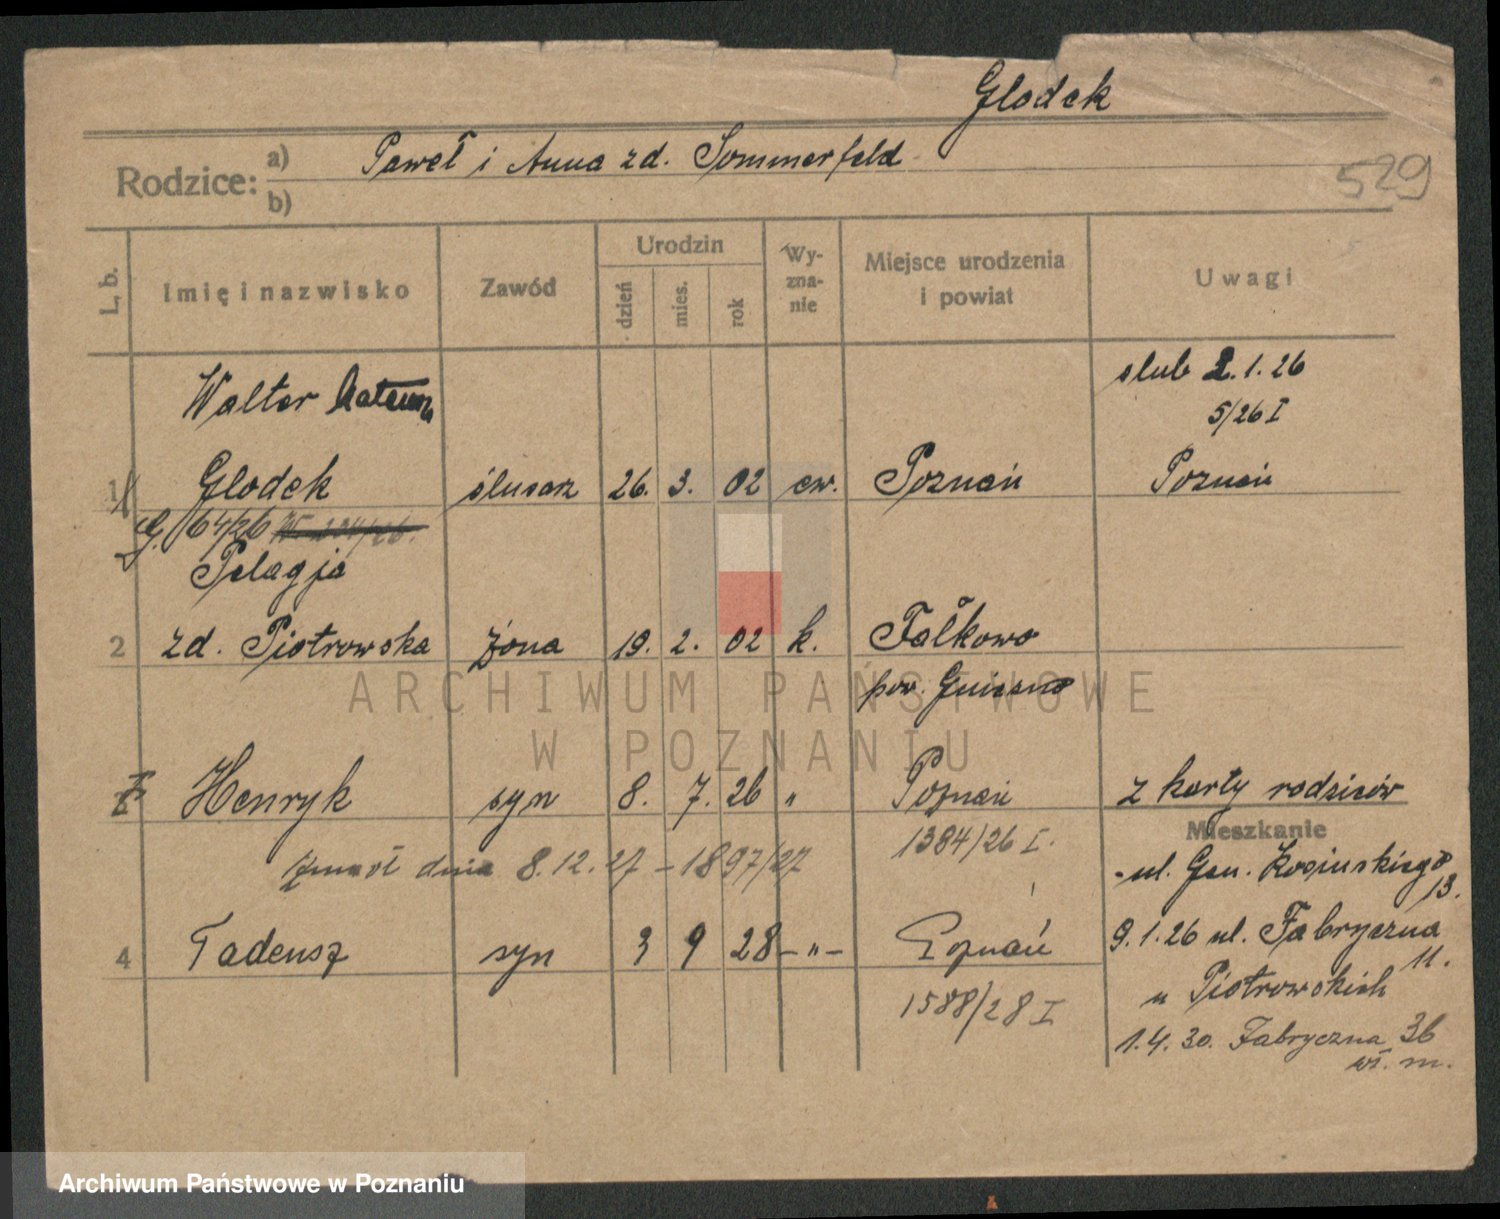 Glodek
Rodzice: a) Paweł i Anna zd. Sommerfeld
b)
529
L. b. Imię i nazwisko Zawód Urodzin dzień mies. rok Wy-zna-nie Miejsce urodzenia i powiat Uwagi
Walter ślub 2.1.26
5/26 I
1 Glodek ślusarz 26. 3. 02 ew. Poznań Poznań
G. 64/26
Pelagja
2 zd. Piotrowska żona 19. 2. 02 k. Fałkowo
pow. Gniezno
Henryk syn 8. 7. 26 " Poznań z karty rodziców
Mieszkanie
zmarł dnia 8.12.27 – 1897/27 1384/26 I. ul. Gen. Kosińskiego 13.
4 Tadeusz syn 3 9 28 –"– Poznań 9.1.26 ul. Fabryczna 11.
u Piotrowskich
1588/28 I 1.4.30. Fabryczna 36
wł. m.
ARCHIWUM PAŃSTWOWE
W POZNANIU
Archiwum Państwowe w Poznaniu